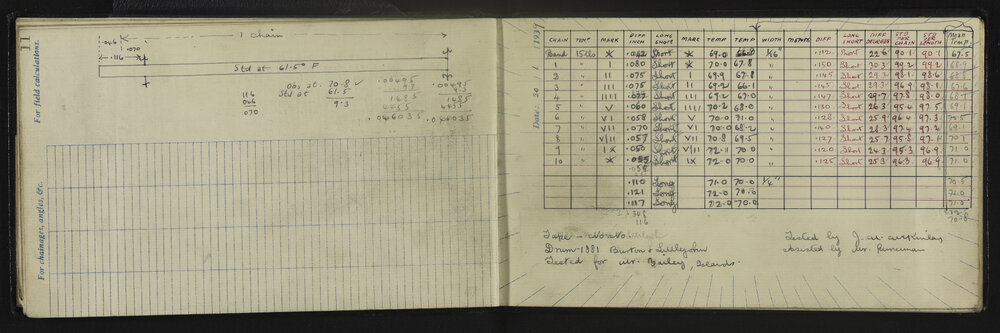 11
For field calculations.
For chainages, angles, &c.
1 chain
.046
.070
.116
Std at 61.5° F
Obs at 70.8 ✓
Std at 61.5
9.3
116
046
070
.00495
9.3
1485
4455
.046035
.00495
9.3
1485
4455
.046035
Date: 30 / 1 / 1939
CHAIN TEN' MARK DIFF INCH LONG SHORT MARK TEMP TEMP WIDTH DIFF LONG SHORT DIFF DEGREES STD PER CHAIN STD PER LENGTH Mean Temp.
Band 15lbs * .042 Short * 69.0 66.0 1/16" .112 Short 22.6 90.1 90.1 67.5
1 " I .080 Short * 70.0 67.8 " .150 Short 30.3 99.2 99.2 68.9
2 " II .075 Short I 69.9 67.8 " .145 Short 29.3 98.1 98.6 68.8
3 " III .075 Short II 69.2 66.1 " .145 Short 29.3 96.9 98.1 67.6
4 " IIII .077 Short III 69.2 67.0 " .147 Short 29.7 97.8 98.0 68.1
5 " V .060 Short IIII 70.2 68.0 " .130 Short 26.3 95.4 97.5 69.1
6 " VI .058 Short V 70.0 71.0 " .128 Short 25.9 96.4 97.3 70.5
7 " VII .070 Short VI 70.0 68.2 " .140 Short 28.3 97.4 97.2 69.1
8 " VIII .057 Short VII 70.8 69.5 " .127 Short 25.7 95.8 97.1 70.1
9 " IX .050 Short VIII 72.1 70.0 " .120 Short 24.3 95.3 96.9 71.0
10 " * .055 Short IX 72.0 70.0 " .125 Short 25.3 96.3 96.9 71.0
.110 Long 71.0 70.0 1/4" 70.5
.121 Long 72.0 70.0 71.0
.117 Long 72.0 70.0 71.0
348
116
70.8
Drum-1881 Burton & Littlejohn
Tested for Mr. Bailey, Islands.
Tested by J. M.
Assisted by Mr. Runciman